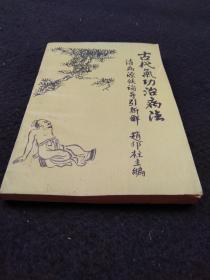 古代气功治病法
诸病源候论导引新解
赵邦柱主编